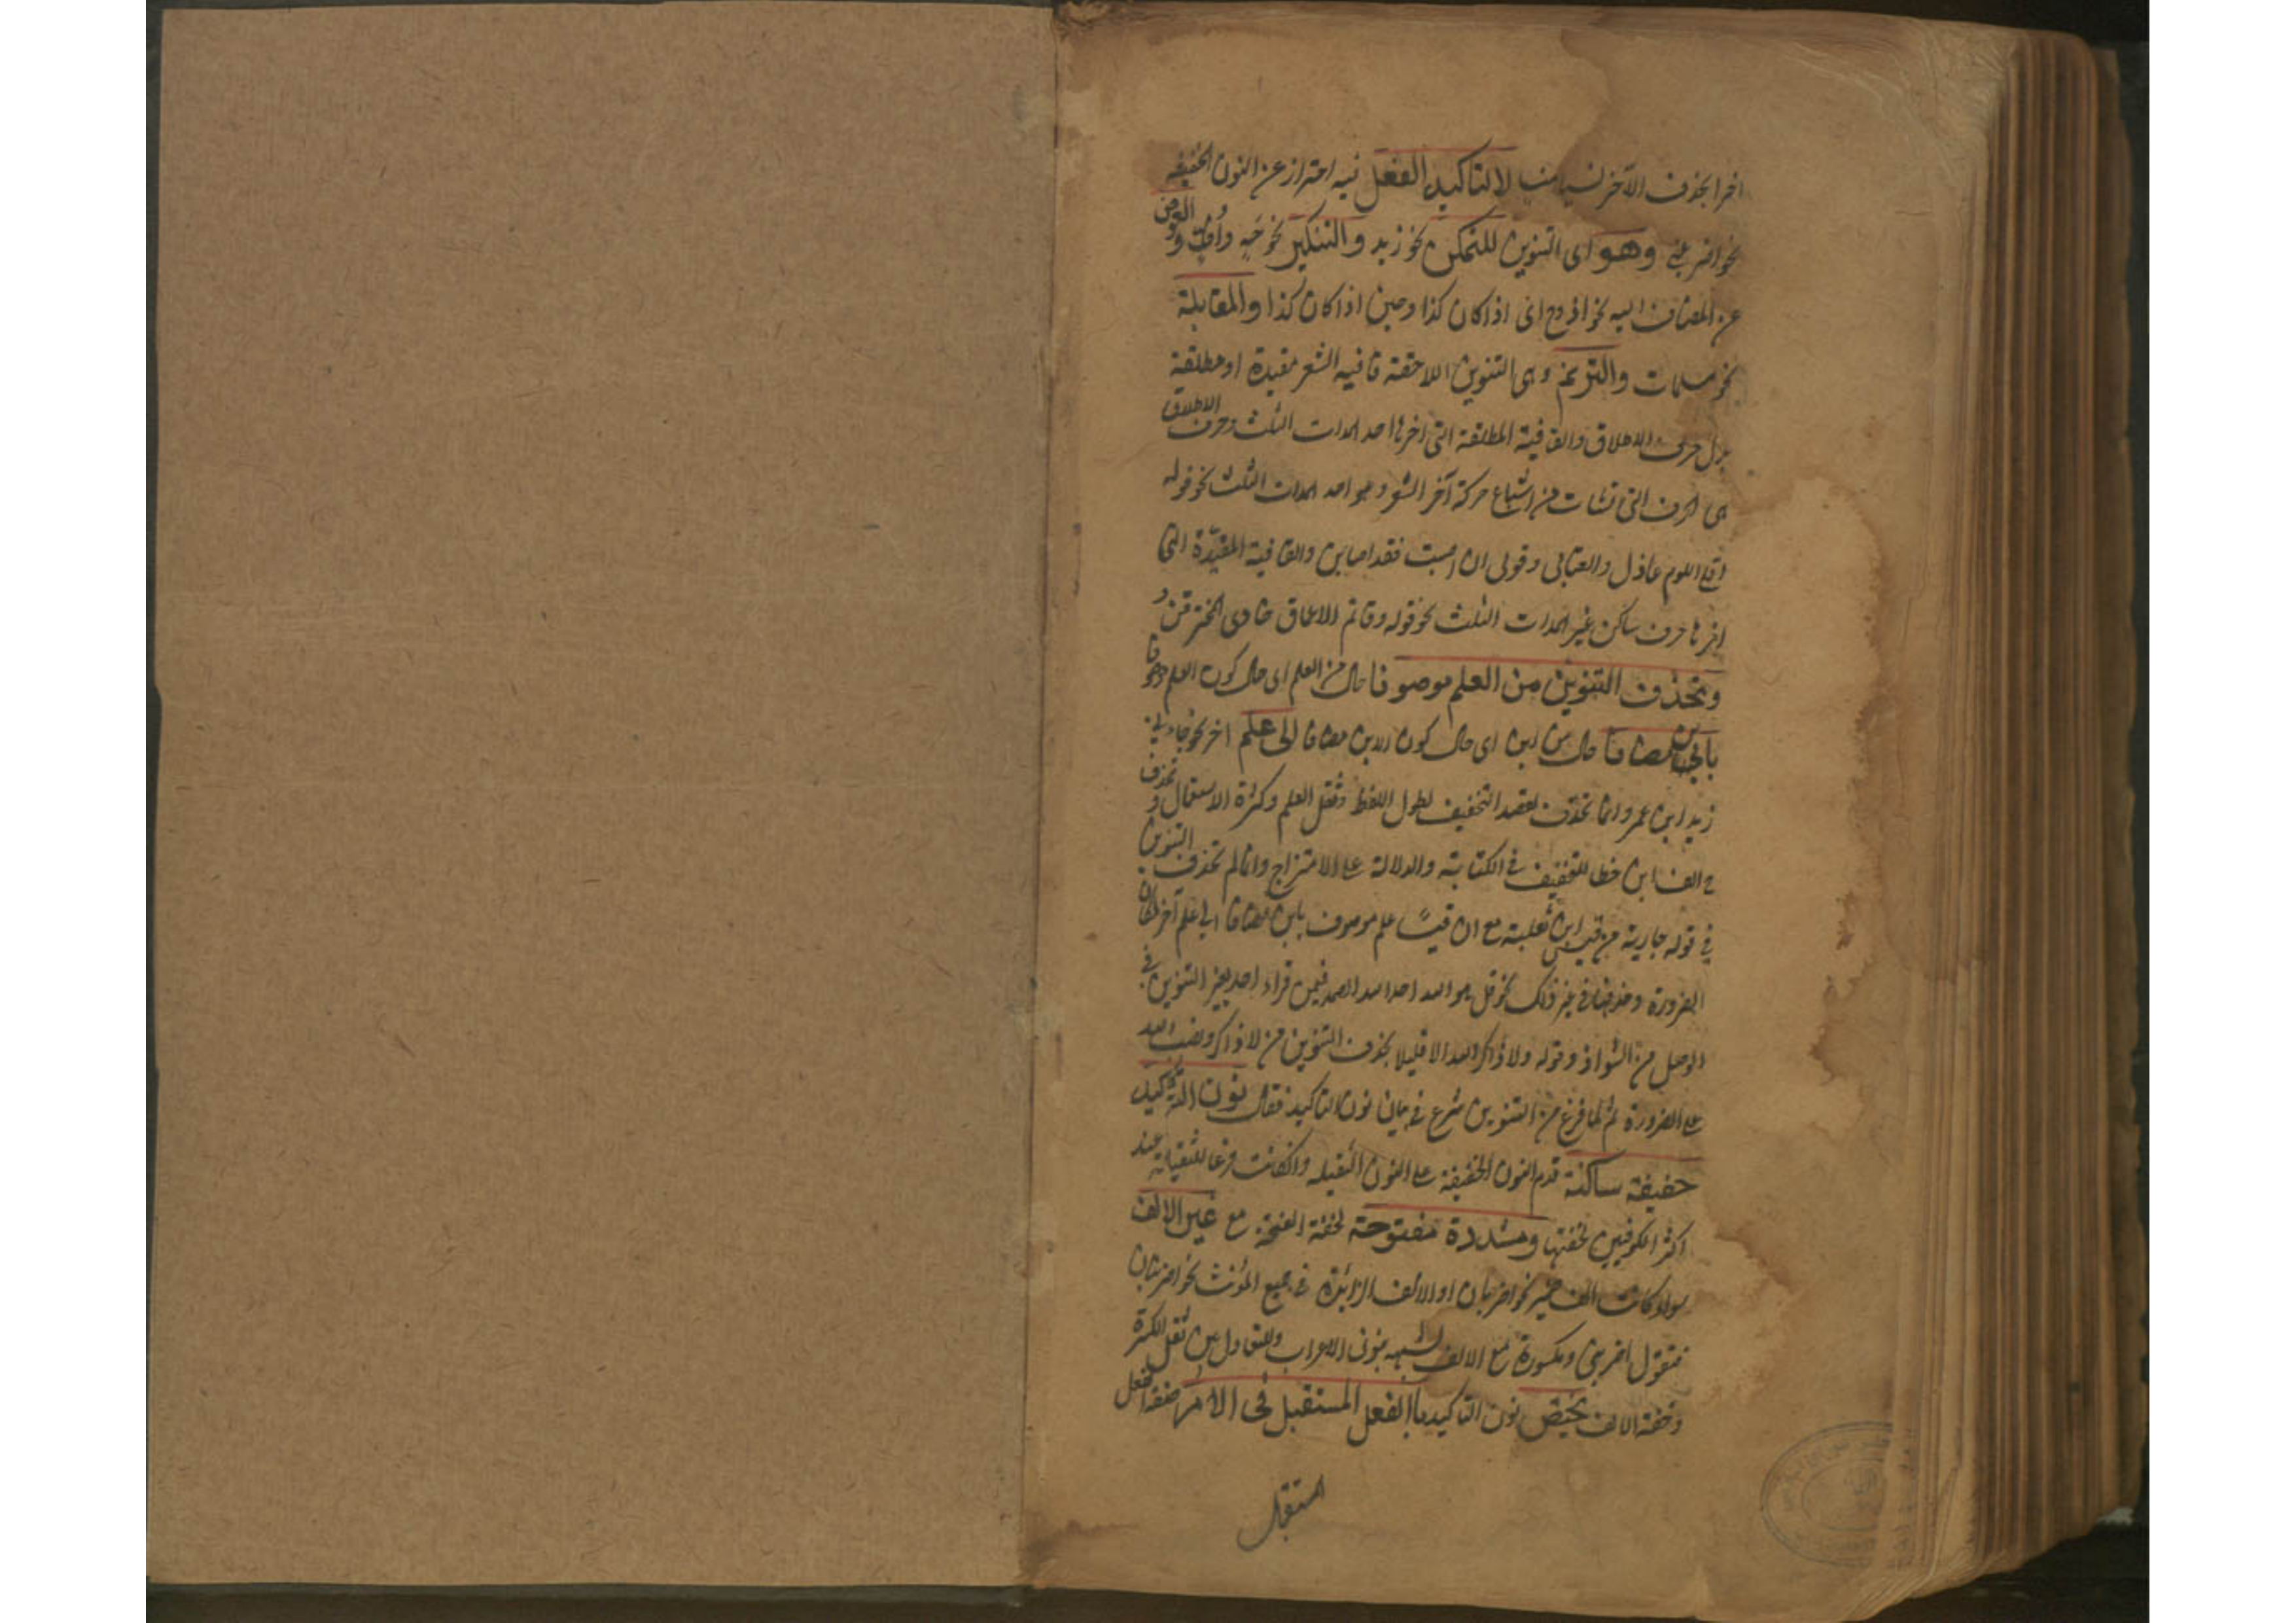 اخرا بحذف الآخر نسيا منسيا لا لتاكيد الفعل فيه احتراز عن النون الخفيفه
نحو اضربن وهو اى التنوين للتمكن نحو زيد والتنكير نحو صه واف والعوض
عن المضاف اليه نحو اذ وح اى اذا كان كذا وحين اذا كان كذا والمقابلة
نحو مسلمات والترنم وهى التنوين اللاحقة قافيه الشعر مقيدة او مطلقة
بدل حرف الاطلاق والقافية المطلقة التى اخرها احد المدات الثلث وحرف الاطلاق
هى الحرف التى نشات من اشباع حركة آخر الشعر وهو احد المدات الثلث نحو قوله
اقلى اللوم عاذل والعتابى وقولى ان اصبت فقد اصابن والقافية المقيدة التى
اخرها حرف ساكن غير المدات الثلث نحو قوله وقاتم الاعماق خاوى المخترقن و
وتحذف التنوين من العلم موصوفا حال من العلم اى حال كون العلم موصوفا
بابن مضافا حال من ابن اى حال كون الابن مضافا الى علم اخر نحو جاءنى
زيد ابن عمرو وانما تحذف لقصد التخفيف لطول اللفظ وثقل العلم وكثرة الاستعمال وتحذف
ح الف ابن خطا للتخفيف فى الكتابته والدلالة على الامتزاج وانما لم تحذف التنوين
فى قوله جارية من قيس ابن ثعلبة مع ان قيسا علم موصوف بابن مضافا الى علم آخر لمكان
الضرورة وحذفها فى غير ذلك نحو قل هو الله احد الله الصمد فيمن قراء احد بغير التنوين فى
الوصل من الشواذ وقوله ولا ذاكر الله الا قليلا بحذف التنوين من لا ذاكر ونصب الله
على الضرورة ثم لما فرغ من التنوين شرع فى بيان نون التاكيد فقال نون التاكيد
خفيفة ساكنة قدم النون الخفيفة على النون الثقيله وان كانت فرعا للثقيلة عند
اكثر الكوفيين لخفتها ومشددة مفتوحة لخفة الفتحة مع غير الالف
سواء كانت الف ضمير نحو اضربان او الالف الزائدة فى جمع المؤنث نحو اضربنان
فتقول اضربن ومكسورة مع الالف لشبهه بنون الاعراب وللتعادل بين ثقل الكسرة
وخفة الالف يختص نون التاكيد باالفعل المستقبل فى الامر صفة الفعل
المستقبل